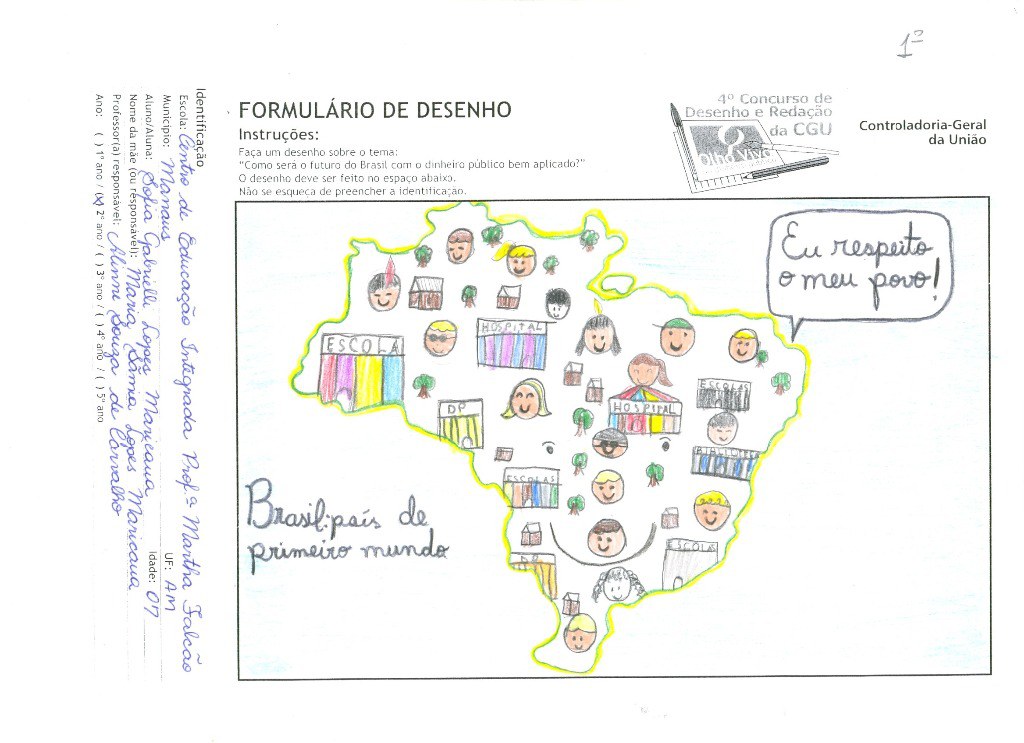 1º
FORMULÁRIO DE DESENHO
Instruções:
Faça um desenho sobre o tema:
“Como será o futuro do Brasil com o dinheiro público bem aplicado?”
O desenho deve ser feito no espaço abaixo.
Não se esqueça de preencher a identificação.
4º Concurso de
Desenho e Redação
da CGU
Olho Vivo
Controladoria-Geral
da União
Identificação
Escola: Centro de Educação Integrada Profª Martha Falcão
Município: Manaus UF: AM
Aluno/Aluna: Sofia Gabrielli Lopes Maricaua Idade: 07
Nome da mãe (ou responsável): Maria Lopes Maricaua
Professor(a) responsável: Souza de Carvalho
Ano: ( ) 1º ano / (x) 2º ano / ( ) 3º ano / ( ) 4º ano / ( ) 5º ano
Eu respeito
o meu povo!
ESCOLA
HOSPITAL
DP
HOSPITAL
ESCOLAS
ESCOLAS
ESCOLA
DP
Brasil: país de
primeiro mundo